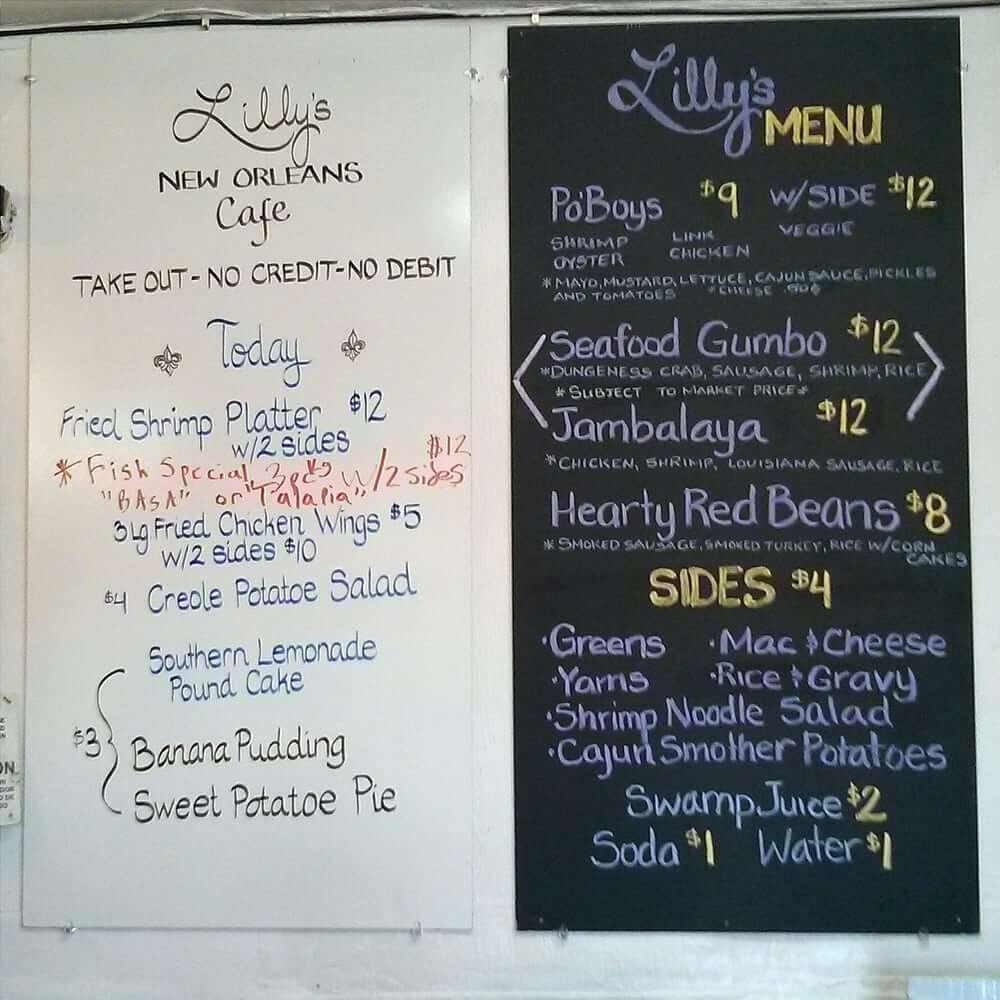 Lilly's
NEW ORLEANS
Cafe
TAKE OUT - NO CREDIT - NO DEBIT
Today
Fried Shrimp Platter $12
w/2 sides
* Fish Special 3pcs w/2 sides $12
"BASA" or "Talapia"
3 Lg Fried Chicken Wings $5
w/2 sides $10
$4 Creole Potatoe Salad
Southern Lemonade
Pound Cake
$3
Banana Pudding
Sweet Potatoe Pie
Lilly's
MENU
Po'Boys $9 W/SIDE $12
SHRIMP LINK VEGGIE
OYSTER CHICKEN
* MAYO, MUSTARD, LETTUCE, CAJUN SAUCE, PICKLES
AND TOMATOES *CHEESE .50¢
Seafood Gumbo $12
*DUNGENESS CRAB, SAUSAGE, SHRIMP, RICE
*SUBJECT TO MARKET PRICE*
Jambalaya $12
*CHICKEN, SHRIMP, LOUISIANA SAUSAGE, RICE
Hearty Red Beans $8
*SMOKED SAUSAGE, SMOKED TURKEY, RICE W/CORN
CAKES
SIDES $4
·Greens ·Mac & Cheese
·Yams ·Rice & Gravy
·Shrimp Noodle Salad
·Cajun Smother Potatoes
Swamp Juice $2
Soda $1 Water $1